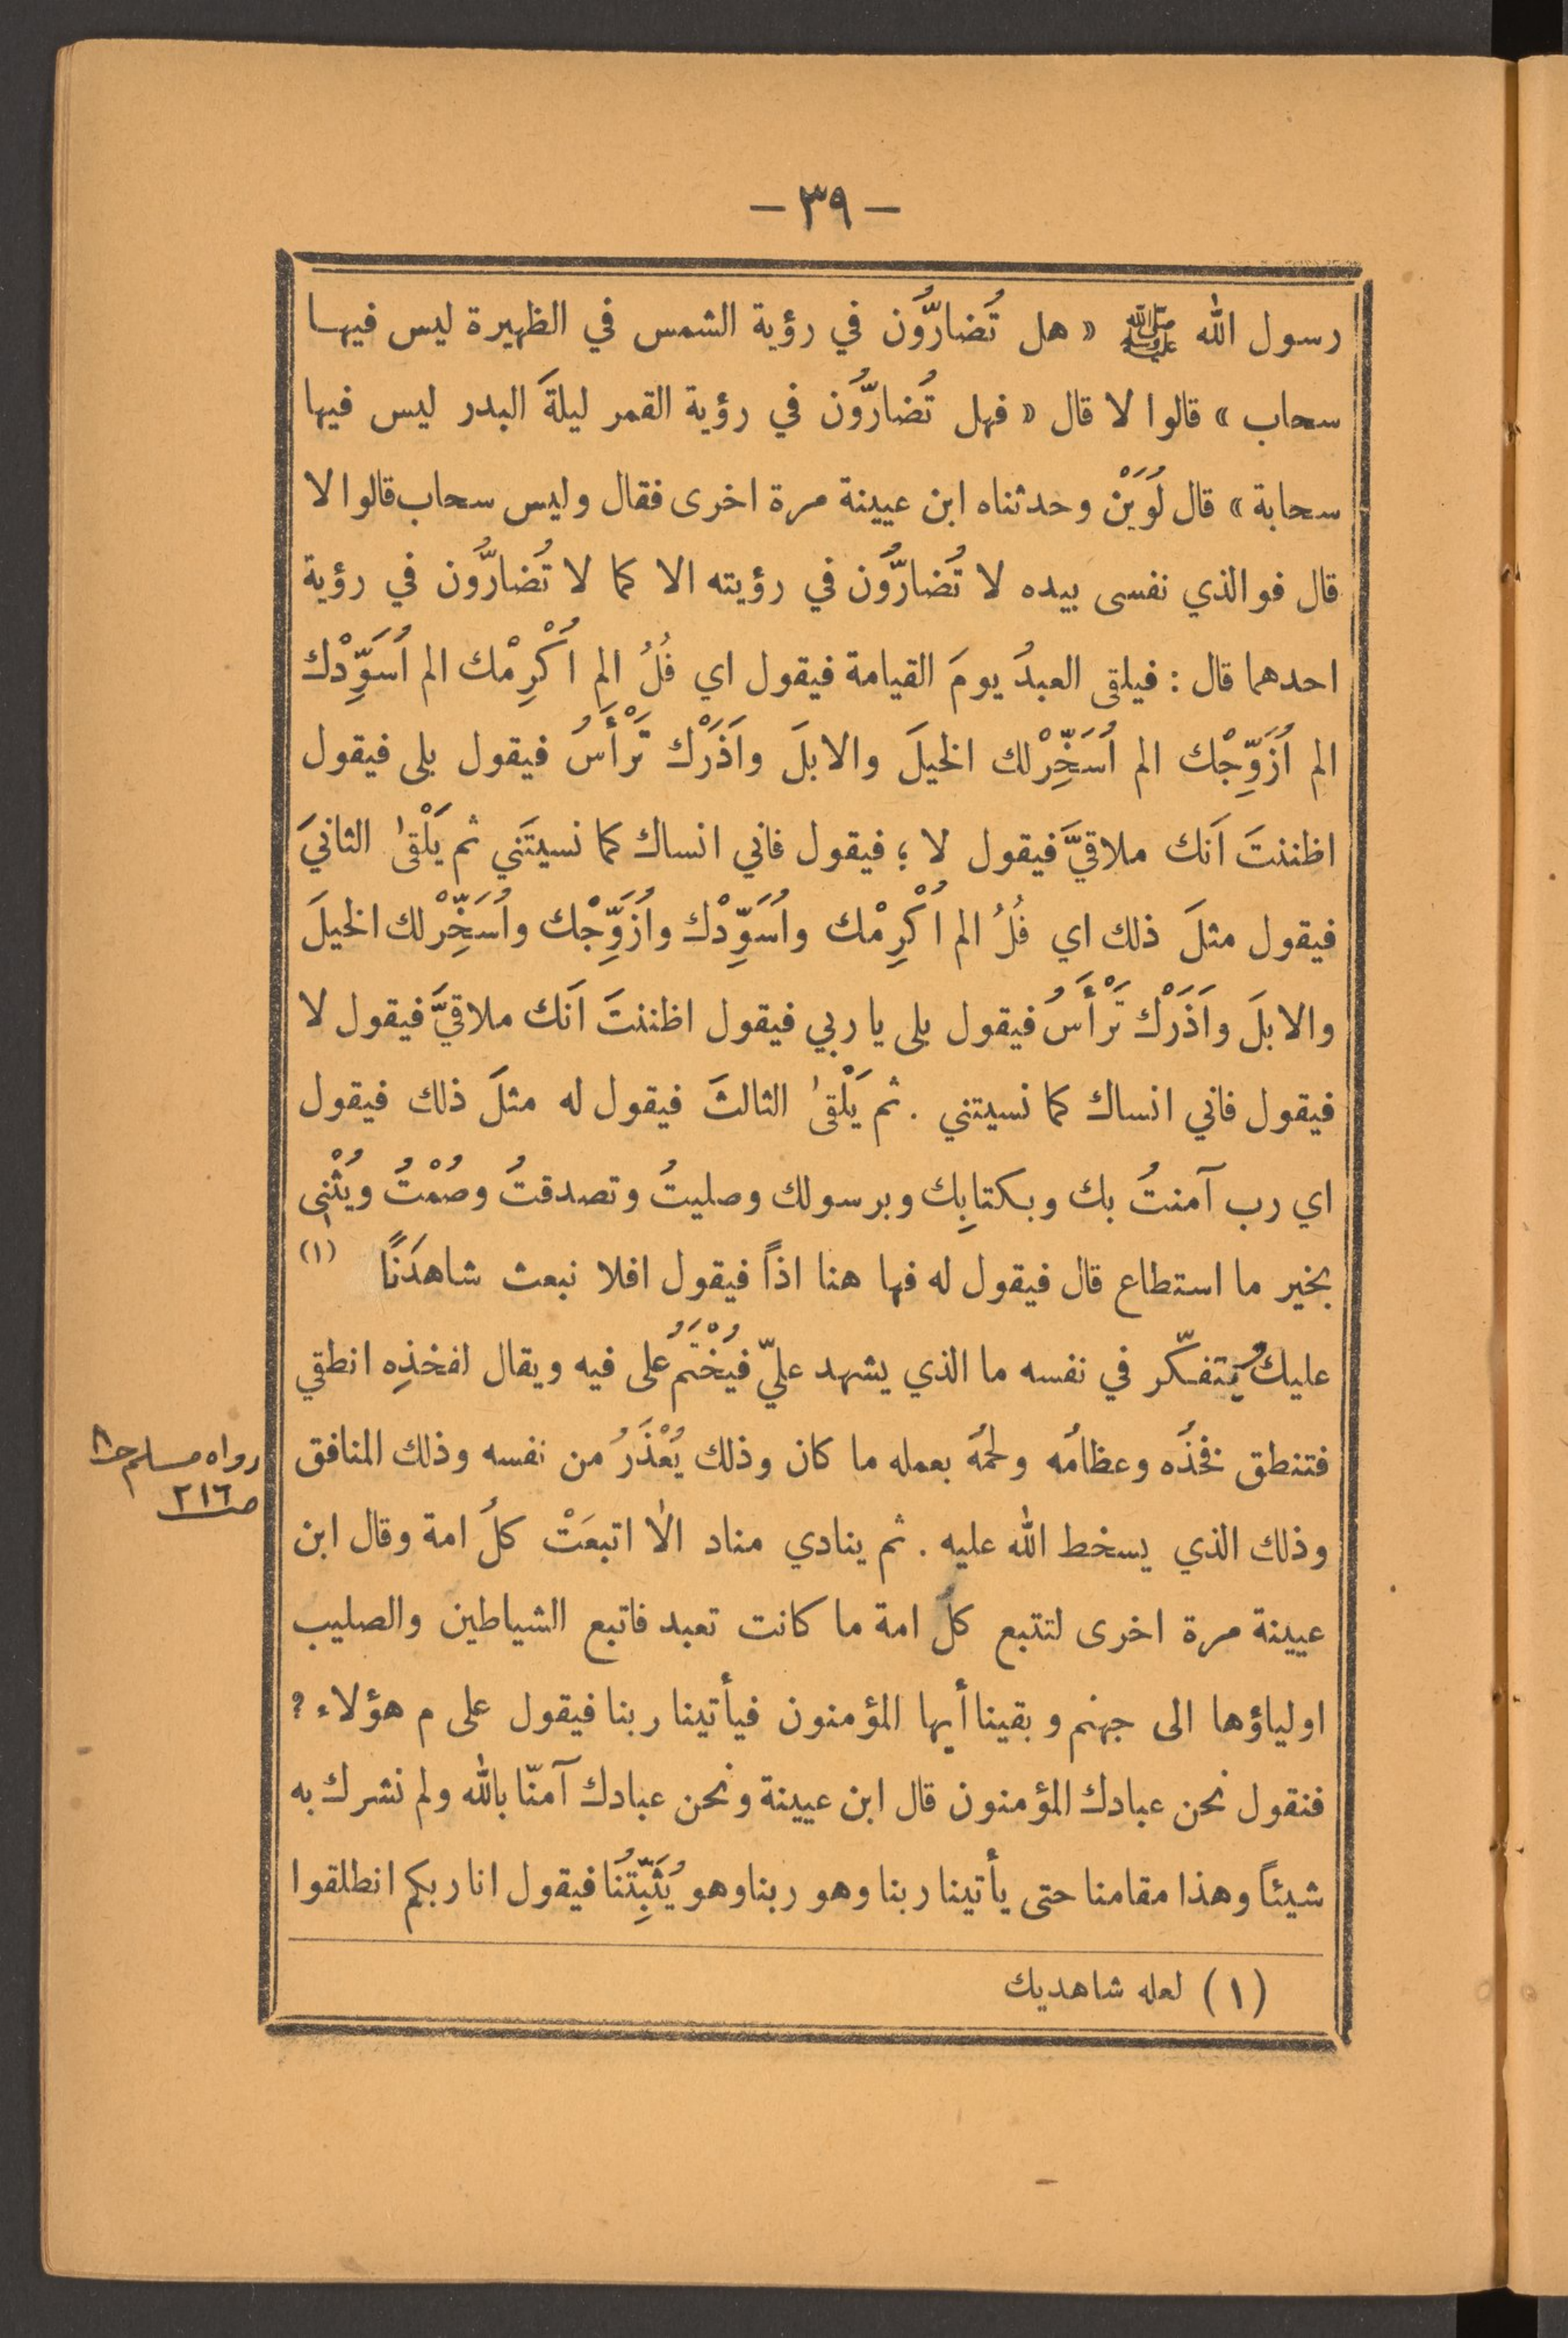 — ٣٩ —
رسول الله ﷺ « هل تُضارُّون في رؤية الشمس في الظهيرة ليس فيهـا
سحاب » قالوا لا قال « فهل تُضارُّون في رؤية القمر ليلةَ البدر ليس فيها
سحابة » قال لُوَيْن وحدثناه ابن عيينة مرة اخرى فقال وليس سحاب قالوا لا
قال فوالذي نفسى بيده لا تُضارُّون في رؤيته الا كما لا تُضارُّون في رؤية
احدهما قال : فيلقى العبدُ يومَ القيامة فيقول اي فُلُ الم اُكْرِمْك الم اُسَوِّدْك
الم اُزَوِّجْك الم اُسَخِّرْلك الخيلَ والابلَ واَذَرْك تَرْأَسُ فيقول بلى فيقول
اظننتَ اَنك ملاقيَّ فيقول لا ؛ فيقول فاني انساك كما نسيتَني ثم يَلْقىٰ الثانيَ
فيقول مثلَ ذلك اي فُلُ الم اُكْرِمْك واُسَوِّدْك واُزَوِّجْك واُسَخِّرْلك الخيلَ
والابلَ واَذَرْك تَرْأَسُ فيقول بلى يا ربي فيقول اظننتَ اَنك ملاقيَّ فيقول لا
فيقول فاني انساك كما نسيتني . ثم يَلْقىٰ الثالثَ فيقول له مثلَ ذلك فيقول
اي رب آمنتُ بك وبكتابِك وبرسولك وصليتُ وتصدقتُ وصُمْتُ ويُثْنِى
بخير ما استطاع قال فيقول له فها هنا اذاً فيقول افلا نبعث شاهدَنًا (١)
عليك ويتفكّر في نفسه ما الذي يشهد عليّ فيُخْتَمُ على فيه ويقال لفخذِه انطقي
فتنطق فخذُه وعظامُه ولحمُه بعمله ما كان وذلك يُعْذَرُ من نفسه وذلك المنافق
رواه مسلم ح٨
ص٢١٦
وذلك الذي يسخط الله عليه . ثم ينادي مناد الا اتبعَتْ كلُ امة وقال ابن
عيينة مرة اخرى لتتبع كلُ امة ما كانت تعبد فاتبع الشياطين والصليب
اولياؤها الى جهنم وبقينا أيها المؤمنون فيأتينا ربنا فيقول على م هؤلاء ؟
فنقول نحن عبادك المؤمنون قال ابن عيينة ونحن عبادك آمنّا بالله ولم نشرك به
شيئاً وهذا مقامنا حتى يأتينا ربنا وهو ربنا وهو يُثَبِّتُنا فيقول انا ربكم انطلقوا
(١) لعله شاهديك